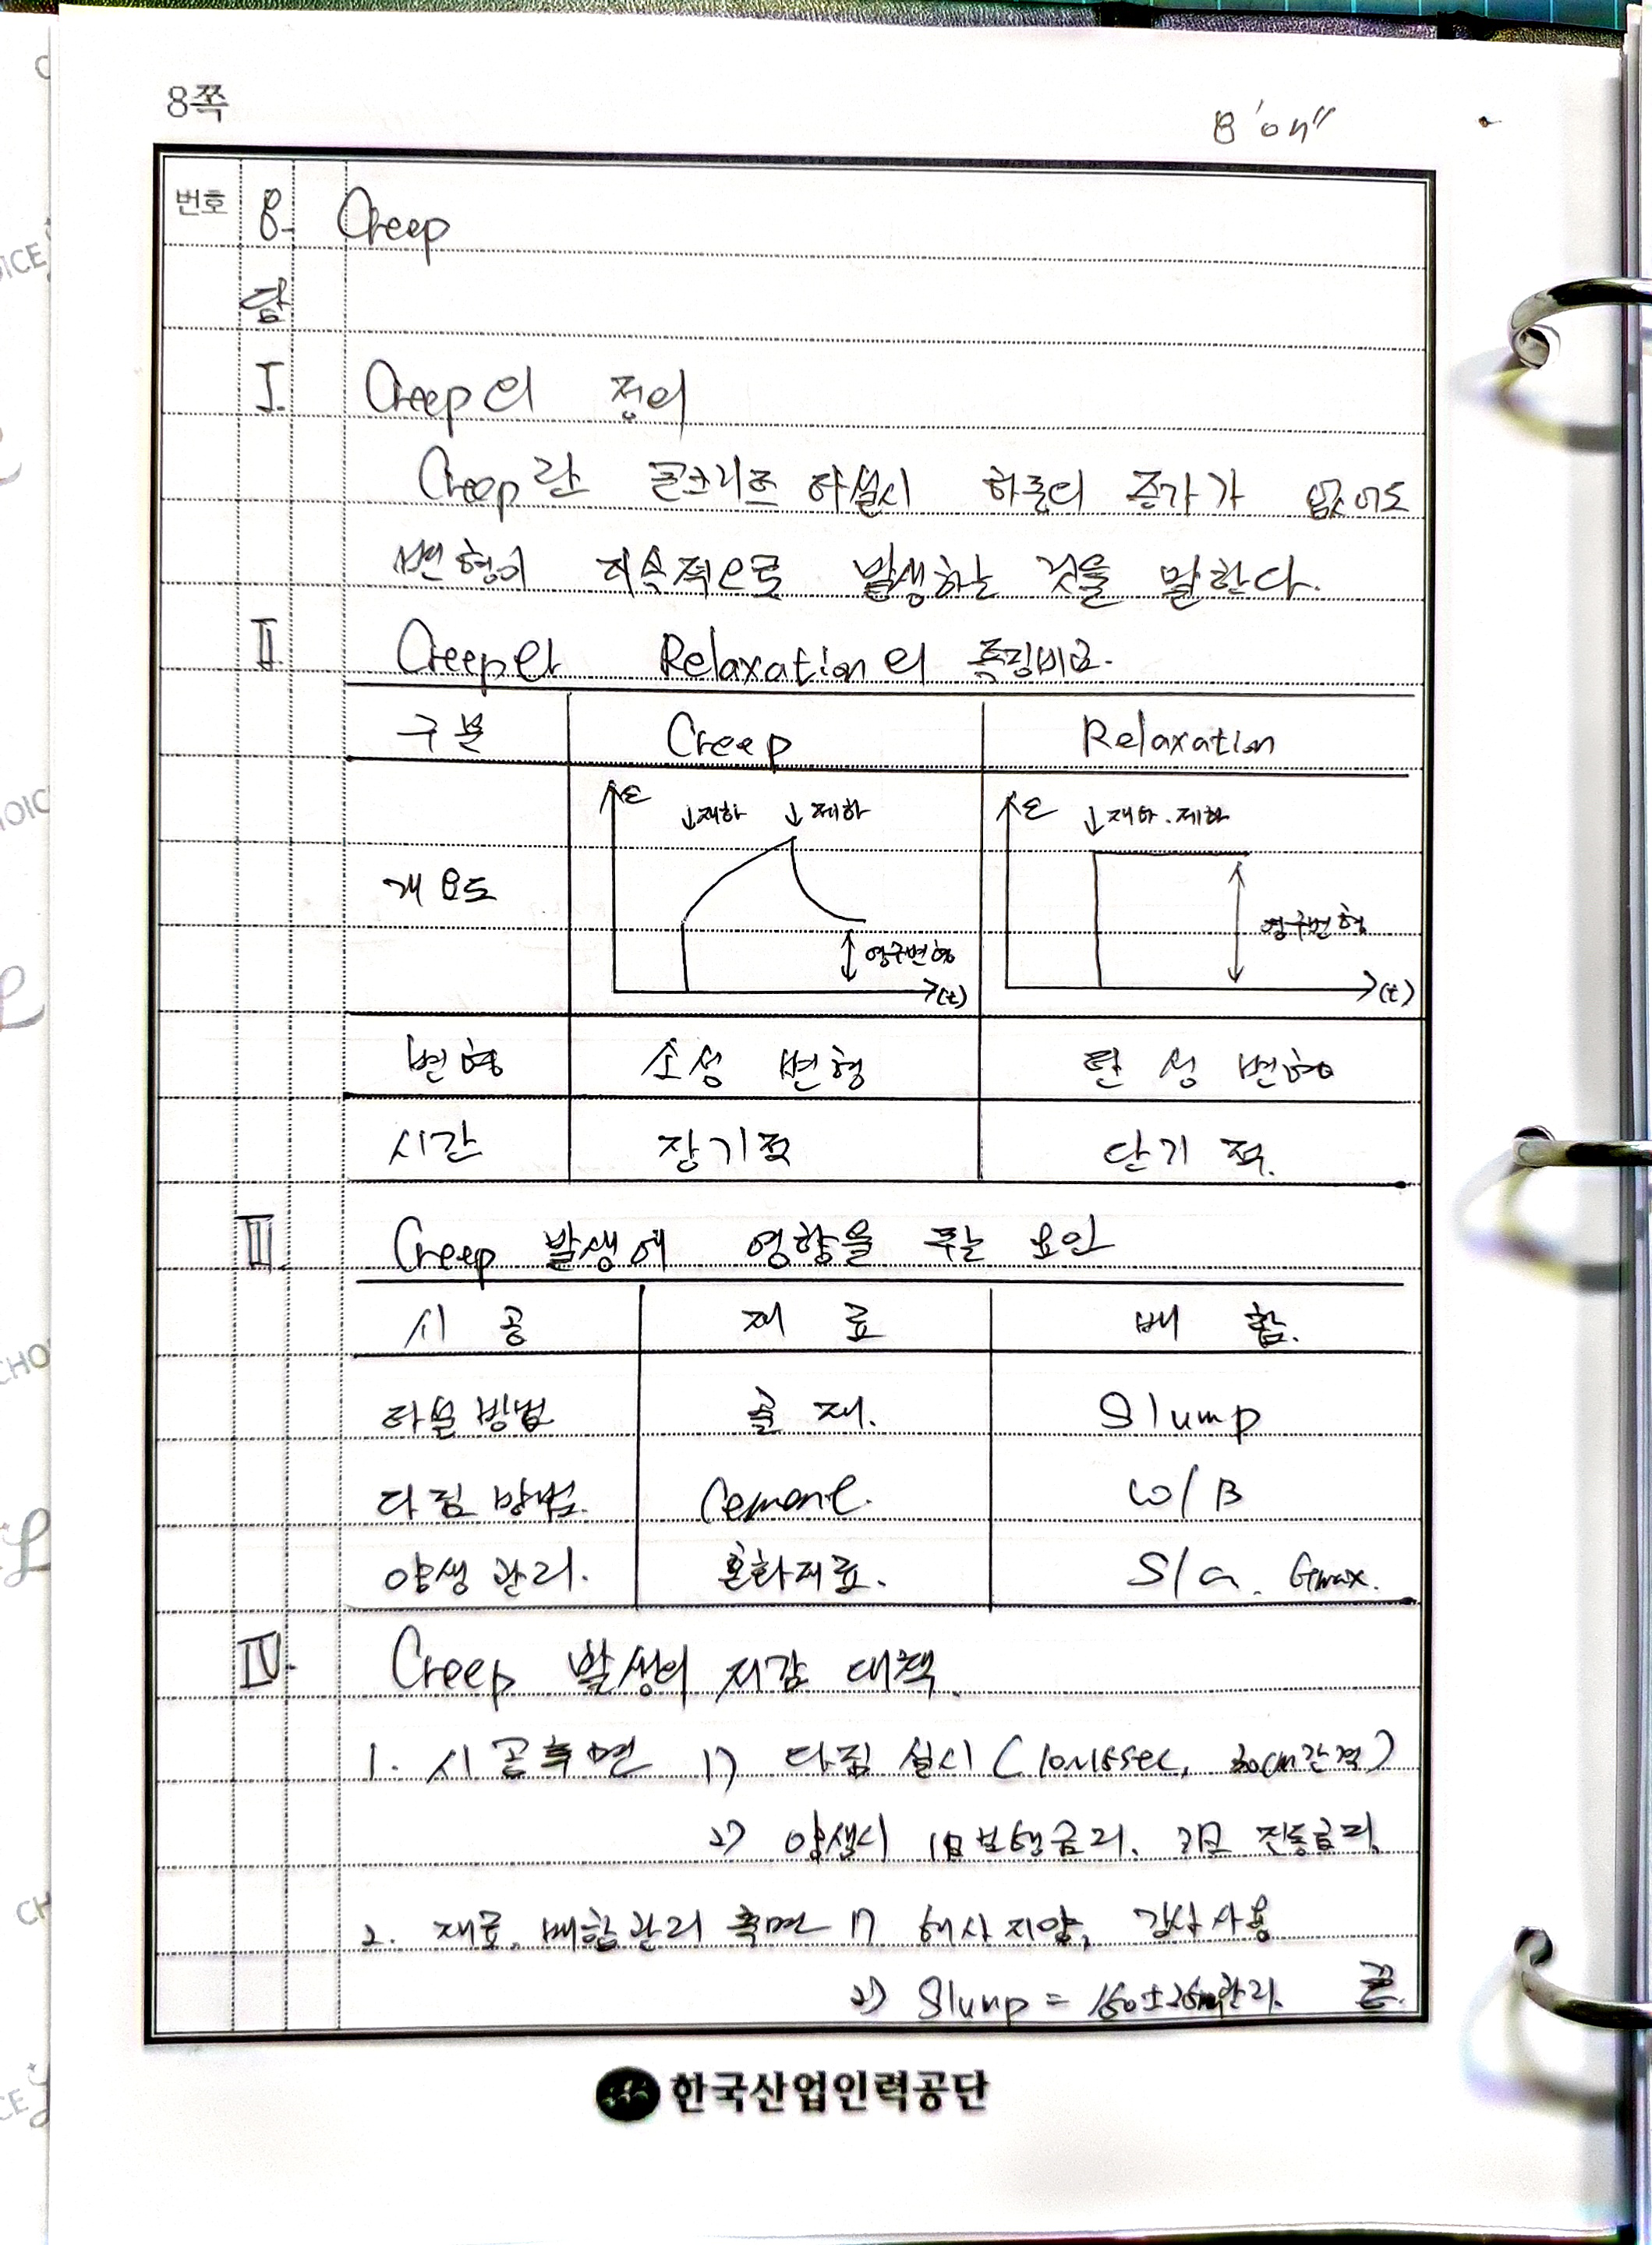 8쪽
8'04"
번호 8. Creep
답
I. Creep의 정의
Creep란 콘크리트 타설시 하중의 증가가 없어도
변형이 지속적으로 발생하는 것을 말한다.
II. Creep와 Relaxation의 특징비교.
구분 Creep Relaxation
개요도
ε ↓재하 ↓제하 영구변형 (t)
ε ↓재하.제하 영구변형 (t)
변형 소성 변형 탄성 변형
시간 장기적 단기적.
III. Creep 발생에 영향을 주는 요인
시공 재료 배합.
타설방법 골재. Slump
다짐방법. Cement. W/B
양생관리. 혼화재료. S/a. Gmax.
IV. Creep 발생의 저감 대책.
1. 시공측면 1) 다짐 실시 (10~15sec, 50cm간격)
2) 양생시 1일 보행금지. 3일 진동금지.
2. 재료. 배합관리 측면 1) 해사지양, 강사사용
2) Slump = 150±25mm관리. 끝.
한국산업인력공단